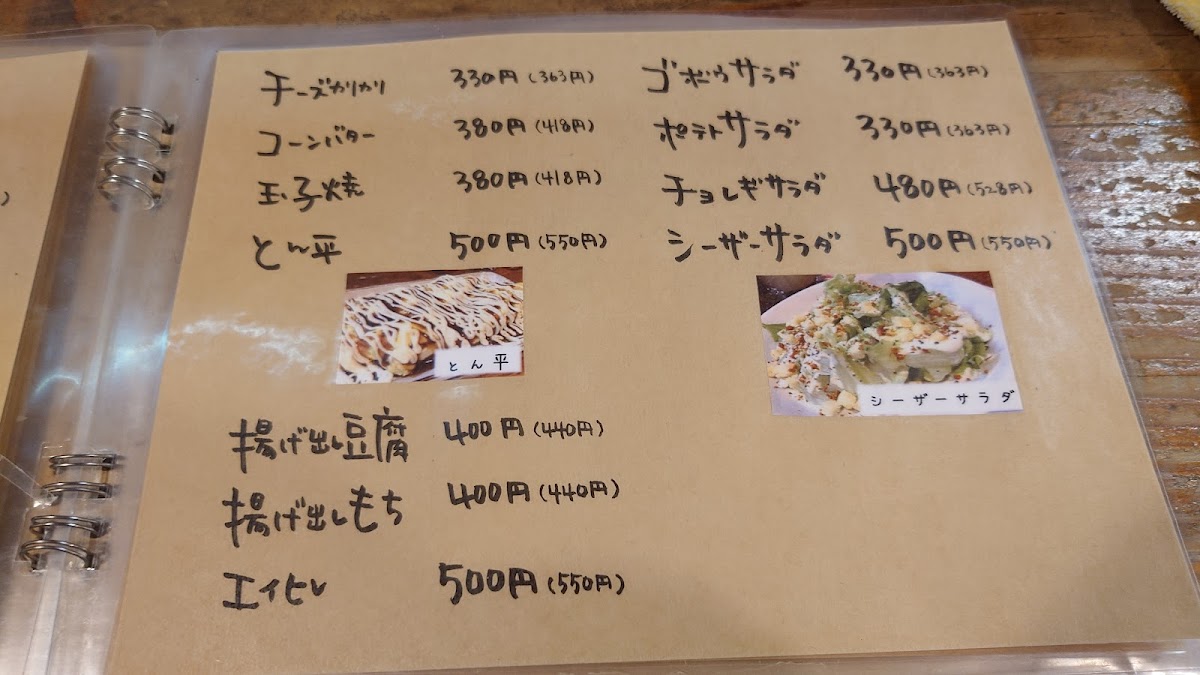 チーズカリカリ 330円(363円)
コーンバター 380円(418円)
玉子焼 380円(418円)
とん平 500円(550円)
とん平
揚げ出し豆腐 400円(440円)
揚げ出しもち 400円(440円)
エイヒレ 500円(550円)
ゴボウサラダ 330円(363円)
ポテトサラダ 330円(363円)
チョレギサラダ 480円(528円)
シーザーサラダ 500円(550円)
シーザーサラダ